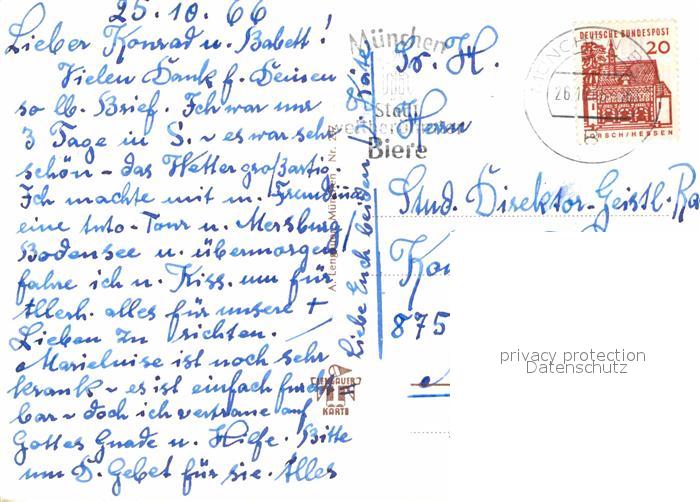 25.10.66
Lieber Konrad u. Babett!
Vielen Dank f. Deinen
so lb. Brief. Ich war nur
3 Tage in S. - es war sehr
schön - das Wetter großartig.
Ich machte mit m. Freundin
eine Auto-Tour n. Mersburg
Bodensee u. übermorgen
fahre ich n. Kiss. um für
Allerh. alles für unsere +
Lieben zu richten.
Marieluise ist noch sehr
krank - es ist einfach furcht
bar - doch ich vertraue auf
Gottes Gnade u. Hilfe. Bitte
um D. Gebet für sie. Alles
Liebe Euch beiden
München
Stadt
weltberühmter
Biere
A. Lengauer, München Nr.
LENGAUER
KARTE
Sr. H.
Herrn
Stud. Direktor - Geistl. Ra
Kon
875
DEUTSCHE BUNDESPOST
20
LORSCH/HESSEN
MÜNCHEN
26.10
privacy protection
Datenschutz